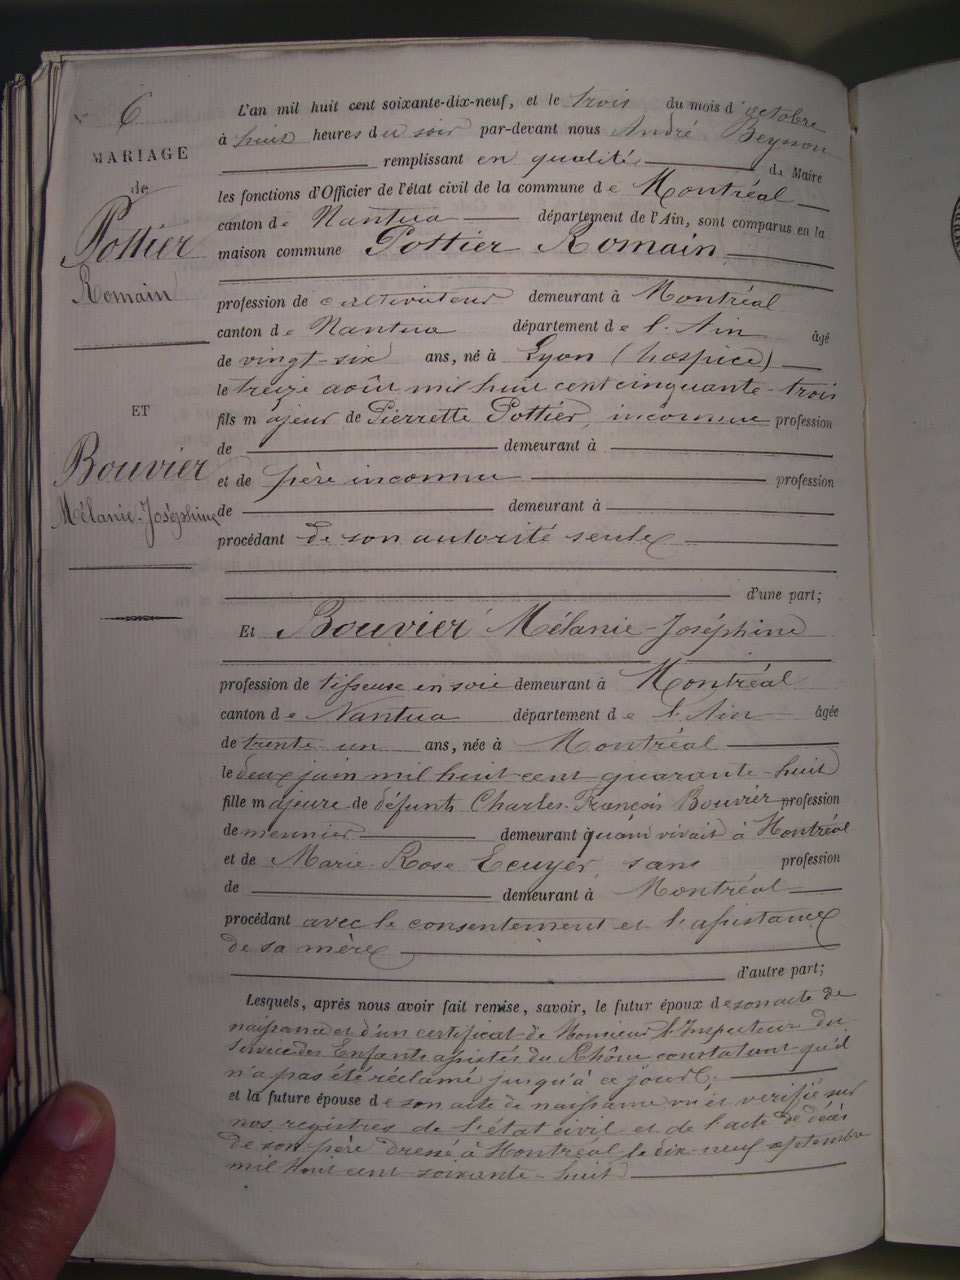 6
MARIAGE
de
Pottier
Romain
ET
Bouvier
Mélanie-Joséphine
L'an mil huit cent soixante-dix-neuf, et le trois du mois d'octobre
à huit heures du soir par-devant nous André Beysson
remplissant en qualité de Maire
les fonctions d'Officier de l'état civil de la commune de Montréal
canton de Nantua département de l'Ain, sont comparus en la
maison commune Pottier Romain
profession de cultivateur demeurant à Montréal
canton de Nantua département de l'Ain âgé
de vingt-six ans, né à Lyon (hospice)
le treize août mil huit cent cinquante-trois
fils majeur de Pierrette Pottier, inconnue profession
de demeurant à
et de père inconnu profession
de demeurant à
procédant de son autorité seule
d'une part;
Et Bouvier Mélanie-Joséphine
profession de tisseuse en soie demeurant à Montréal
canton de Nantua département de l'Ain âgée
de trente un ans, née à Montréal
le deux juin mil huit cent quarante-huit
fille majeure de défunts Charles-François Bouvier profession
de meunier demeurant quand vivait à Montréal
et de Marie Rose Ecuyer, sans profession
de demeurant à Montréal
procédant avec le consentement et l'assistance
de sa mère
d'autre part;
Lesquels, après nous avoir fait remise, savoir, le futur époux de son acte de
naissance et d'un certificat de Monsieur l'Inspecteur du
Service des Enfants assistés du Rhône constatant qu'il
n'a pas été réclamé jusqu'à ce jour
et la future épouse de son acte de naissance vu et vérifié sur
nos registres de l'état civil et de l'acte de décès
de son père dressé à Montréal le dix-neuf septembre
mil huit cent soixante-huit